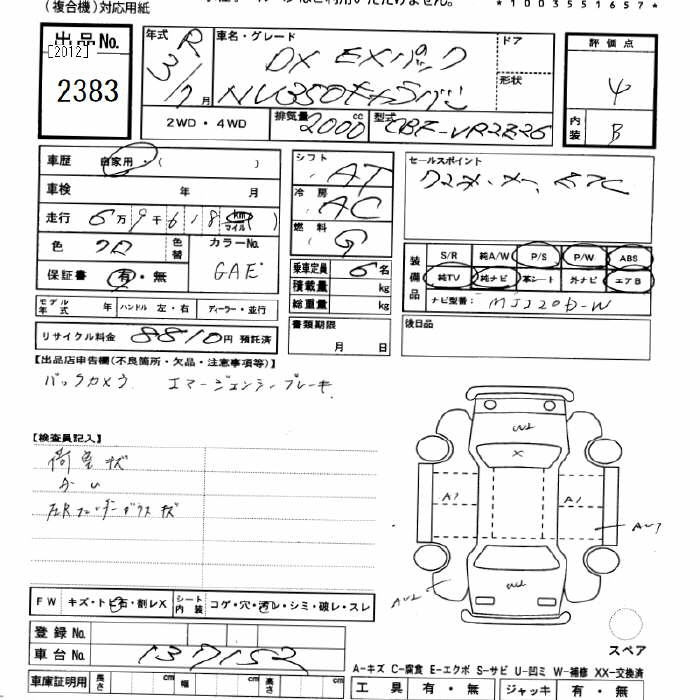 (複合機)対応用紙
*1003551657*
出品No.
[2012]
2383
年式 R 3/7月
車名・グレード DX EXパック
NV350キャラバン
ドア
形状
評価点 4
内装 B
2WD・4WD
排気量 2000cc
型式 CBF-VR2E26
車歴 自家用・( )
車検 年 月
走行 6万9千618km マイル
色 クロ 色替
カラーNo. GAE
保証書 有・無
モデル年式 年 ハンドル 左・右 ディーラー・並行
リサイクル料金 8810円 預託済
シフト AT
冷房 AC
燃料 G
乗車定員 6名
積載量 kg
総重量 kg
書類期限
月 日
セールスポイント
装備品 S/R 純A/W P/S P/W ABS
純TV 純ナビ 革シート 外ナビ エアB
ナビ型番: MJ320D-W
後日品
【出品店申告欄(不良箇所・欠品・注意事項等)】
バックカメラ エマージェンシーブレーキ
【検査員記入】
荷室キズ
左Rクォーターガラスキズ
A1
A1
X
スペア
FW キズ・トビ石・割レX シート内装 コゲ・穴・汚レ・シミ・破レ・スレ
登録No.
車台No. 137152
車庫証明用 長さ 幅 高さ
A-キズ C-腐食 E-エクボ S-サビ U-凹ミ W-補修 XX-交換済
工具 有・無 ジャッキ 有・無